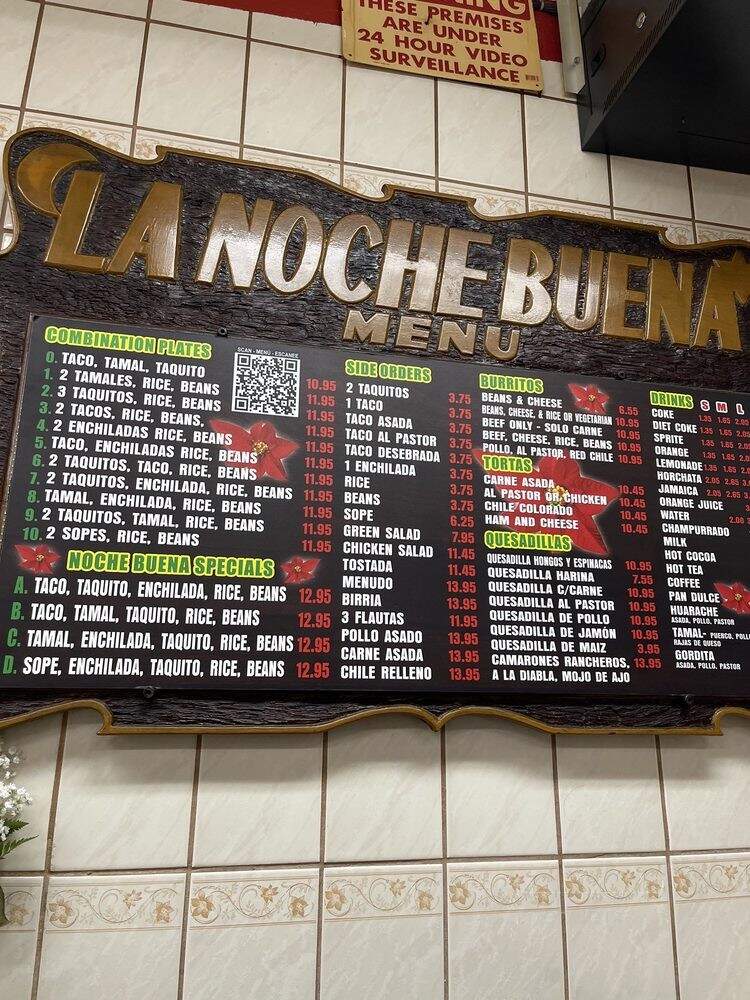 THESE PREMISES
ARE UNDER
24 HOUR VIDEO
SURVEILLANCE
LA NOCHE BUENA
MENU
COMBINATION PLATES
SCAN - MENU - ESCANEE
0. TACO, TAMAL, TAQUITO 10.95
1. 2 TAMALES, RICE, BEANS 11.95
2. 3 TAQUITOS, RICE, BEANS 11.95
3. 2 TACOS, RICE, BEANS. 11.95
4. 2 ENCHILADAS RICE, BEANS 11.95
5. TACO, ENCHILADAS RICE, BEANS 11.95
6. 2 TAQUITOS, TACO, RICE, BEANS 11.95
7. 2 TAQUITOS, ENCHILADA, RICE, BEANS 11.95
8. TAMAL, ENCHILADA, RICE, BEANS 11.95
9. 2 TAQUITOS, TAMAL, RICE, BEANS 11.95
10. 2 SOPES, RICE, BEANS 11.95
NOCHE BUENA SPECIALS
A. TACO, TAQUITO, ENCHILADA, RICE, BEANS 12.95
B. TACO, TAMAL, TAQUITO, RICE, BEANS 12.95
C. TAMAL, ENCHILADA, TAQUITO, RICE, BEANS 12.95
D. SOPE, ENCHILADA, TAQUITO, RICE, BEANS 12.95
SIDE ORDERS
2 TAQUITOS 3.75
1 TACO 3.75
TACO ASADA 3.75
TACO AL PASTOR 3.75
TACO DESEBRADA 3.75
1 ENCHILADA 3.75
RICE 3.75
BEANS 3.75
SOPE 6.25
GREEN SALAD 7.95
CHICKEN SALAD 11.45
TOSTADA 11.45
MENUDO 13.95
BIRRIA 13.95
3 FLAUTAS 11.95
POLLO ASADO 13.95
CARNE ASADA 13.95
CHILE RELLENO 13.95
BURRITOS
BEANS & CHEESE 6.55
BEANS, CHEESE, & RICE OR VEGETARIAN 10.95
BEEF ONLY - SOLO CARNE 10.95
BEEF, CHEESE, RICE, BEANS 10.95
POLLO, AL PASTOR, RED CHILE 10.95
TORTAS
CARNE ASADA 10.45
AL PASTOR OR CHICKEN 10.45
CHILE COLORADO 10.45
HAM AND CHEESE 10.45
QUESADILLAS
QUESADILLA HONGOS Y ESPINACAS 10.95
QUESADILLA HARINA 7.55
QUESADILLA C/CARNE 10.95
QUESADILLA AL PASTOR 10.95
QUESADILLA DE POLLO 10.95
QUESADILLA DE JAMÒN 10.95
QUESADILLA DE MAIZ 3.95
CAMARONES RANCHEROS, 13.95
A LA DIABLA, MOJO DE AJO
DRINKS S M L
COKE 1.35 1.65
DIET COKE 1.35 1.65
SPRITE 1.35 1.65
ORANGE 1.35 1.65
LEMONADE 1.35 1.65
HORCHATA 2.05 2.65
JAMAICA 2.05 2.65
ORANGE JUICE
WATER
CHAMPURRADO
MILK
HOT COCOA
HOT TEA
COFFEE
PAN DULCE
HUARACHE
ASADA, POLLO, PASTOR
TAMAL- PUERCO,
RAJAS DE QUESO
GORDITA
ASADA, POLLO, PASTOR